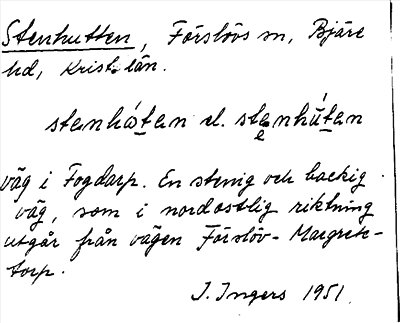 Stenhutten, Förslövs sn, Bjäre
hd, Krist. län.
stenhòtan el. stenhútan
väg i Fogdarp. En stenig och backig
väg, som i nordostlig riktning
utgår från vägen Förslöv - Margrete-
torp.
I. Ingers 1951.